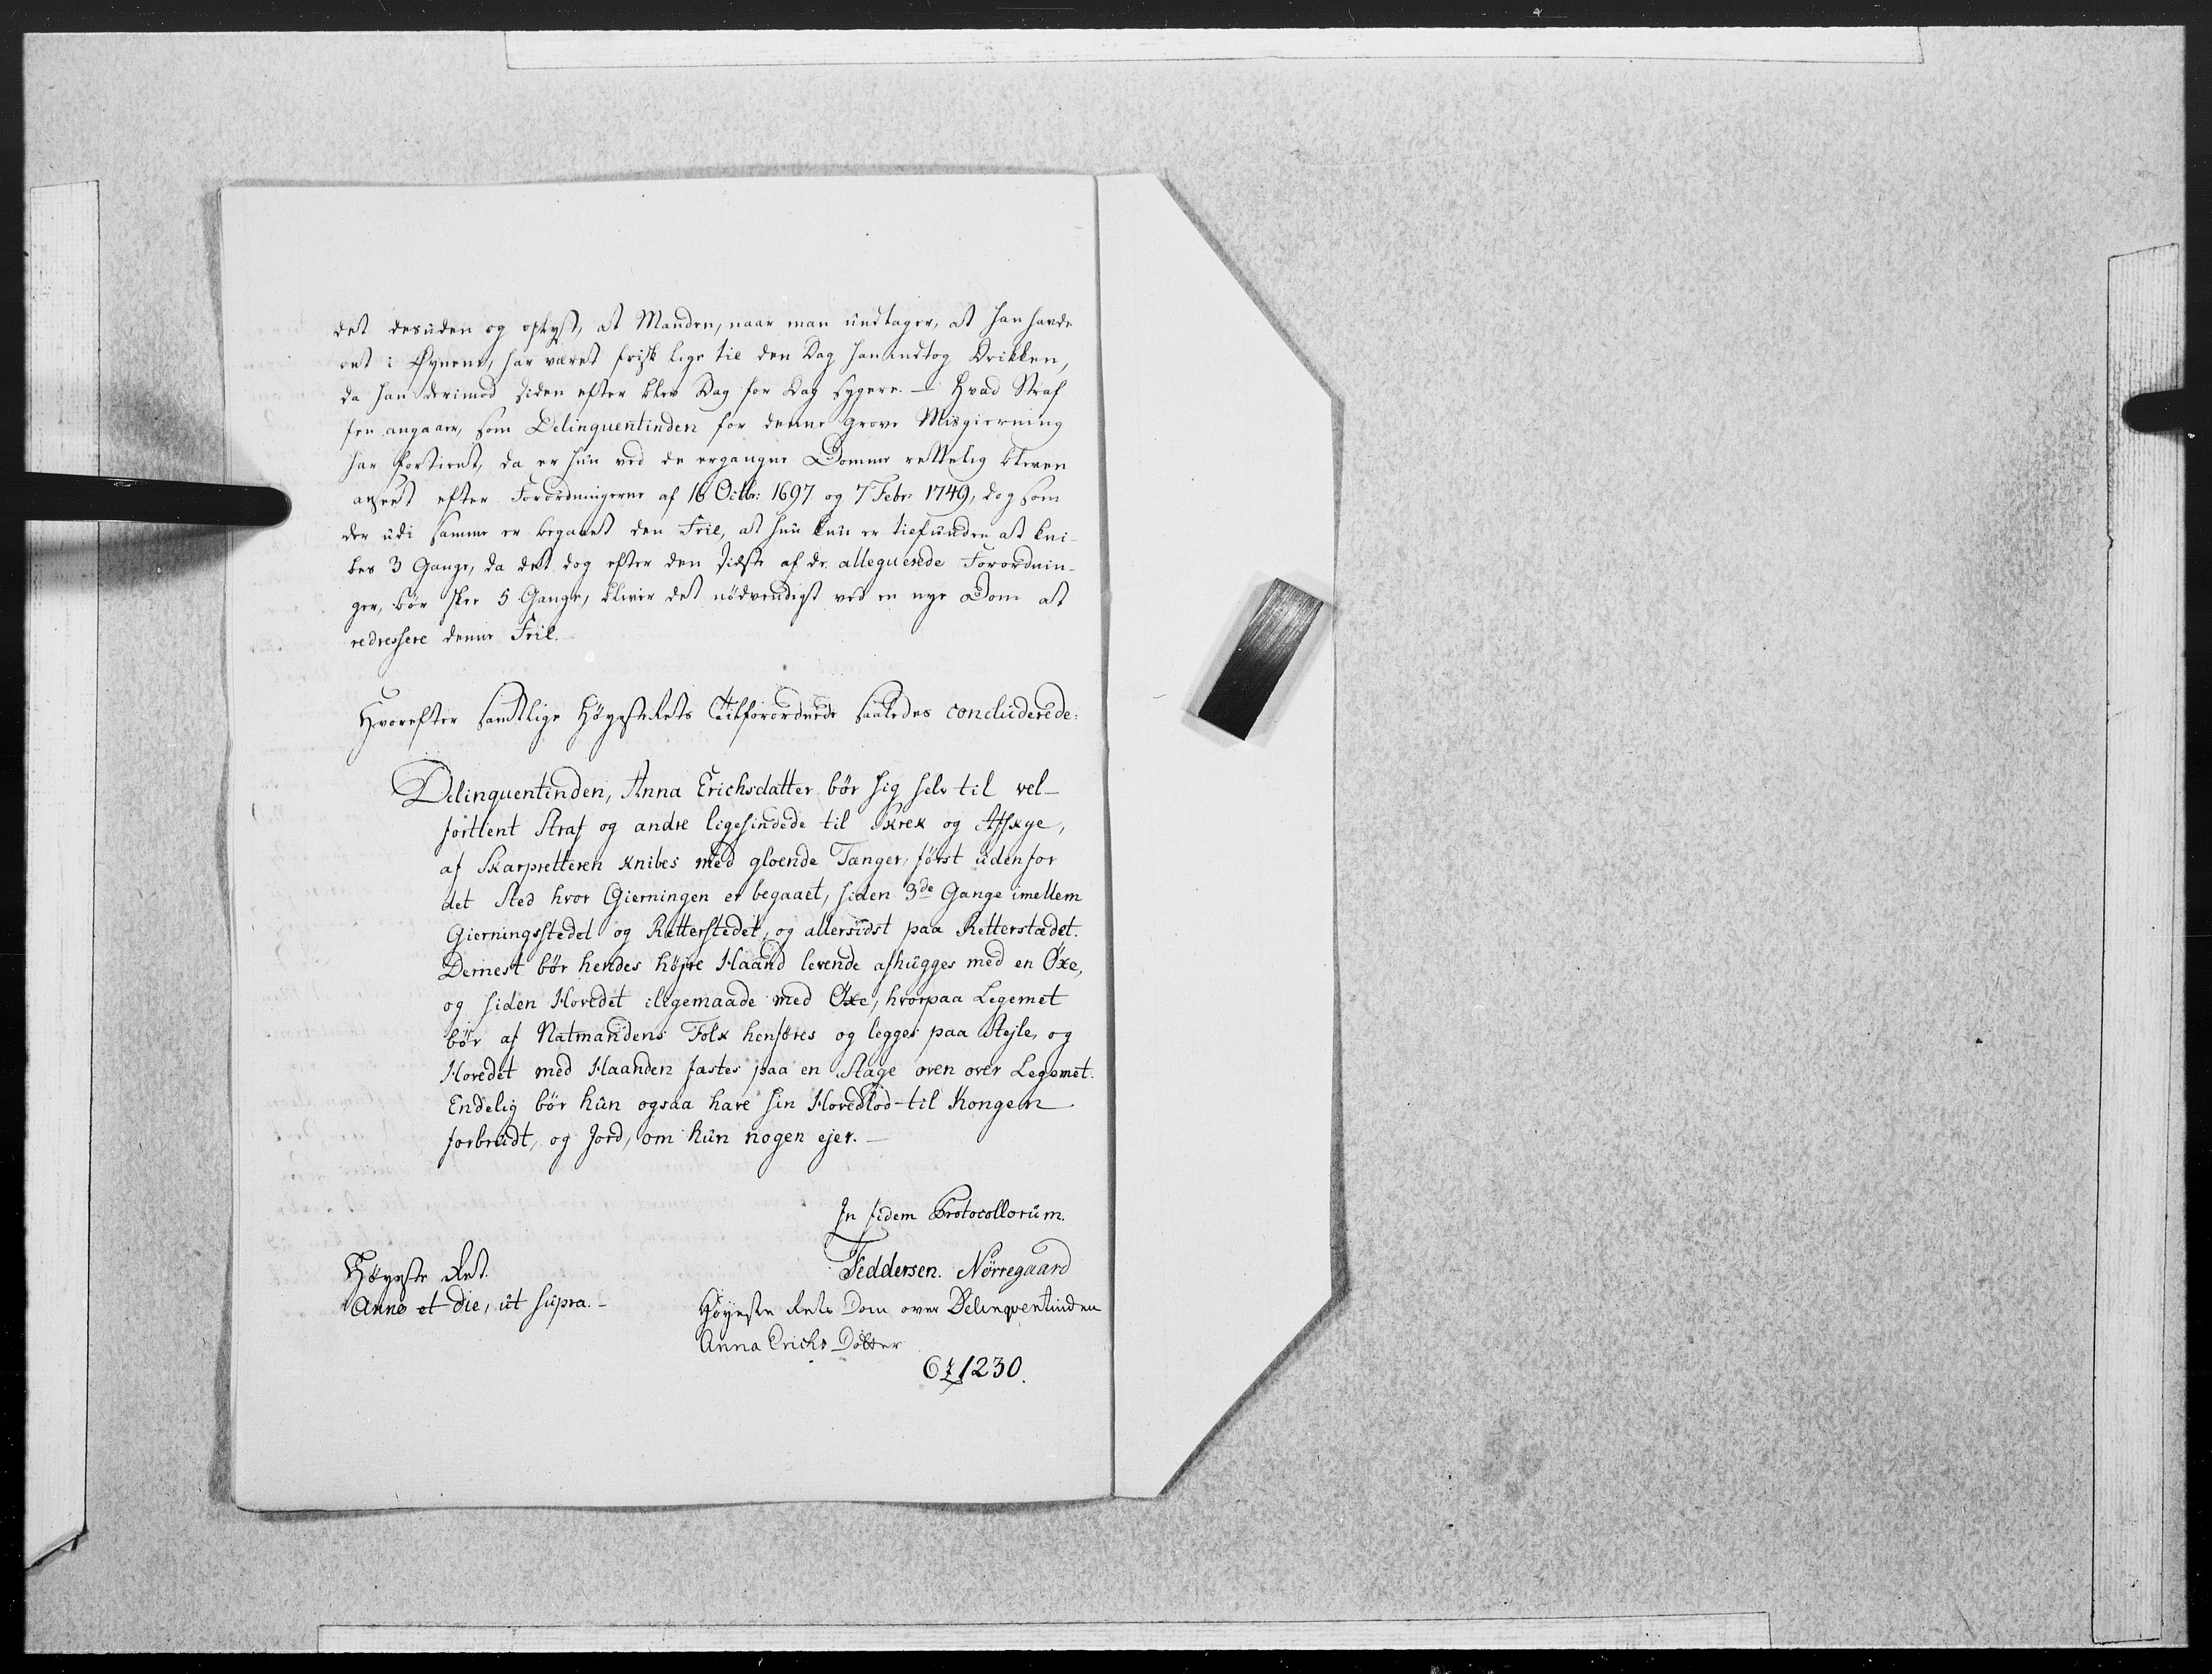 det desuden og oplyst, at Manden, naar man undtager, at han havde
ont i Øynene, har været frisk lige til den Dag han indtog Drikken,
da han derimod siden efter blev Dag for Dag sygere. – Hvad Straf
fen angaaer, som Delinquentinden for denne grove Misgierning
har fortient, da er hun ved de ergangne Domme rettelig bleven
anseet efter Forordningerne af 16 Octbr: 1697 og 7 Febr: 1749, dog som
der udi samme er begaaet den Feil, at hun kun er tilfunden at kni-
bes 3 Gange, da det dog efter den sidste af de alleguerede Forordnin-
ger, bör skee 5 Gange, bliver det nödvendigt ved en nye Dom at
redressere denne Feil.
Hvorefter samtlige HöyesteRets Tilforordnede saaledes concluderede:
Delinquentinden, Anna Erichsdatter bör sig selv til vel-
forttent Straf og andre ligesindede til Skrek og Afskye,
af Skarpretteren knibes med gloende Tænger, först udenfor
det Sted hvor Gierningen er begaaet, siden 3de Gange imellem
Gierningsstedet og Retterstedet, og allersidst paa Retterstædet.
Dernest bör hendes höjre Haand levende afhugges med en Öxe,
og siden Hovedet iligemaade med Öxe, hvorpaa Legemet
bör af Natmandens Folk henföres og legges paa Stejle, og
Hovedet med Haanden fæstes paa en Stage oven over Legemet.
Endelig bör hun ogsaa have sin Hovedlod til Kongen
forbrudt, og Jord, om hun nogen ejer. –
In fidem Protocollorum.
Feddersen. Nörregaard
Höyeste Ret.
Anno et die, ut supra. –
Höyeste Rets Dom over Delinqventinden
Anna Erichs Dötter
1230.